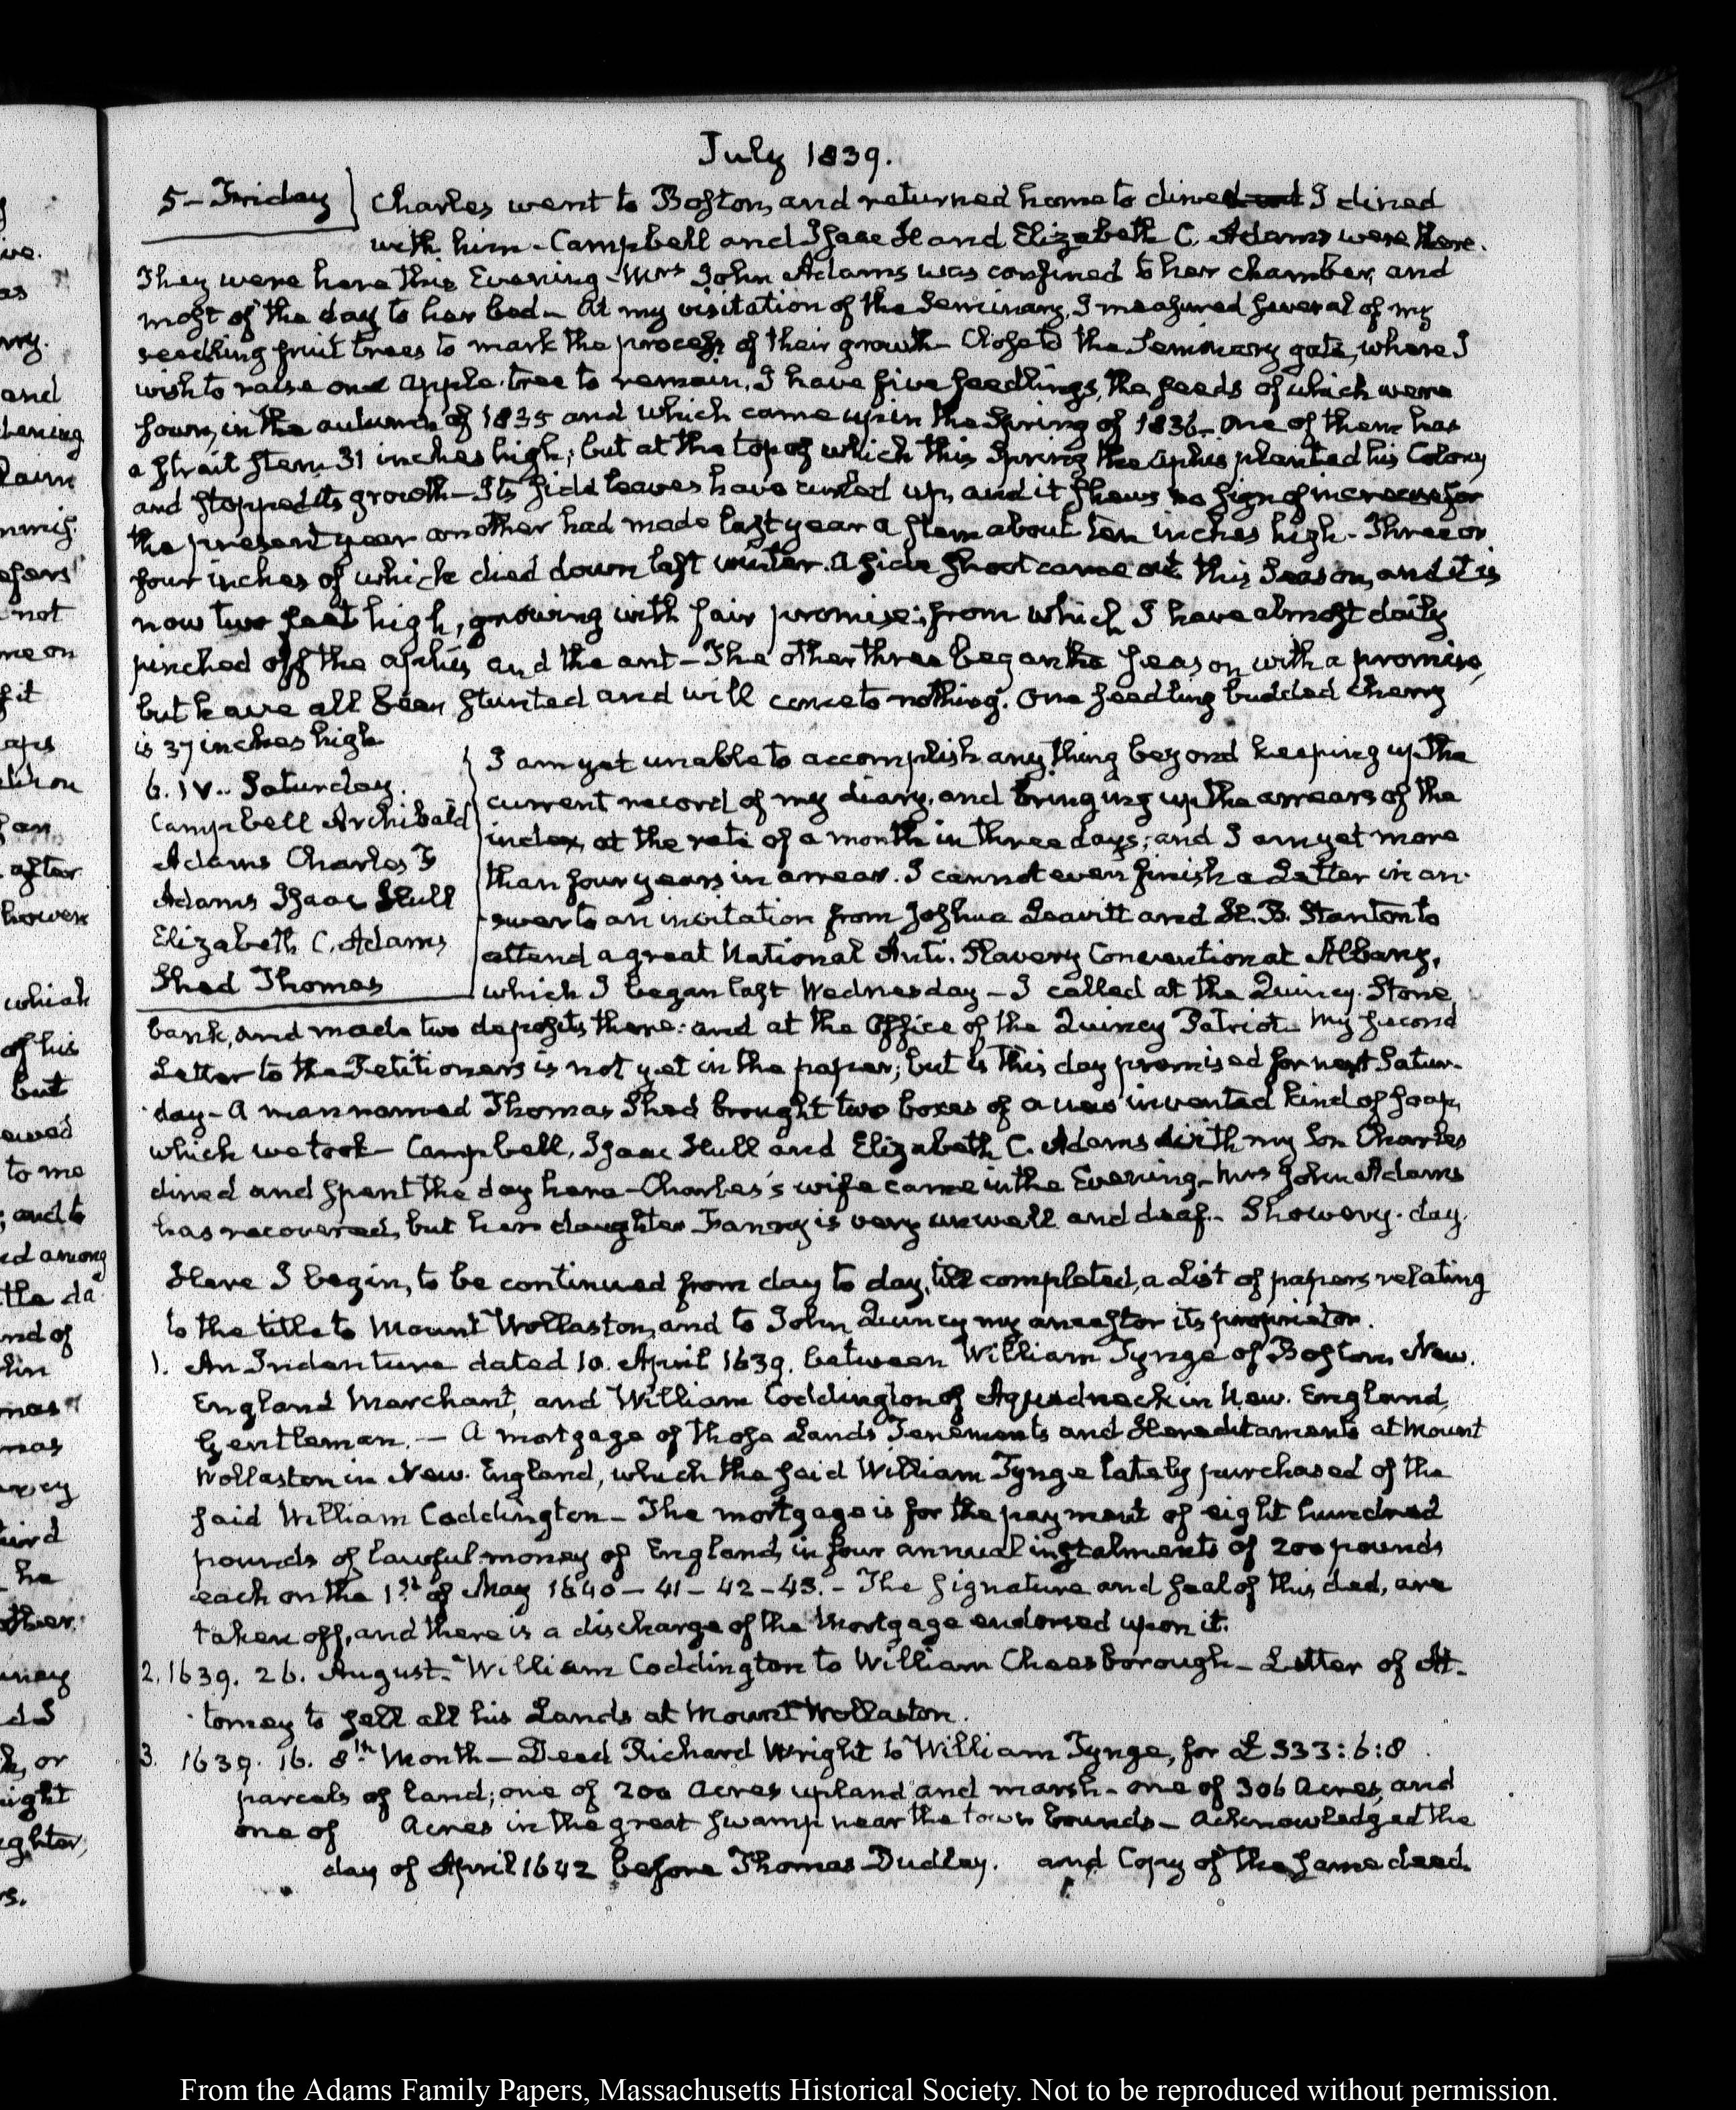 July 1839.
5 - Friday } Charles went to Boston, and returned home to dine I dined
with him - Campbell and Isaac H and Elizabeth C. Adams were there.
They were here this Evening - Mrs John Adams was confined to her chamber, and
most of the day to her bed - At my visitation of the Seminary, I measured several of my
seedling fruit trees to mark the process of their growth - Close to the Seminary gate, where I
wish to raise one apple-tree to remain, I have five seedlings, the seeds of which were
sown, in the autumn of 1835 and which came up in the Spring of 1836 - One of them has
a strait stem 31 inches high; but at the top of which this Spring the aphis planted his Colony
and stopped its growth - Its side leaves have curled up, and it shews no sign of increase for
the present year another had made last year a stem about ten inches high - Three or
four inches of which died down last winter. A side shoot came out this Season, and it is
now two feet high, growing with fair promise; from which I have almost daily
pinched off the aphis and the ant - The other three began the season with a promise,
but have all been stunted and will come to nothing. One seedling budded cherry
is 37 inches high
6. IV.. Saturday.
Campbell Archibald
Adams Charles F
Adams Isaac Hull
Elizabeth C. Adams
Shed Thomas
I am yet unable to accomplish any thing beyond keeping up the
current record of my diary, and bringing up the arrears of the
index, at the rate of a month in three days; and I am yet more
than four years in arrear. I cannot even finish a Letter in an-
swer to an invitation from Joshua Leavitt and H. B. Stanton to
attend a great National Anti-Slavery Convention at Albany,
which I began last Wednesday - I called at the Quincy-Stone
bank, and made two deposits there: and at the Office of the Quincy Patriot. My second
Letter to the Petitioners is not yet in the paper; but is this day promised for next Satur-
day - A man named Thomas Shed brought two boxes of a new invented kind of soap,
which we took - Campbell, Isaac Hull and Elizabeth C. Adams with my Son Charles
dined and spent the day here - Charles's wife came in the Evening - Mrs John Adams
has recovered, but her daughter Fanny is very unwell and deaf - Showery-day.
Here I begin, to be continued from day to day, till completed, a List of papers relating
to the title to Mount Wollaston, and to John Quincy my ancestor its proprietor.
1. An Indenture dated 10. April 1639. between William Tynge of Boston, New.
England Marchant, and William Coddington of Aquedneck in New. England,
Gentleman. - A mortgage of those Lands Tenements and Hereditaments at Mount
Wollaston in New. England, which the said William Tynge lately purchased of the
said William Coddington - The mortgage is for the payment of eight hundred
pounds of lawful money of England, in four annual instalments of 200 pounds
each on the 1st of May 1640 - 41 - 42 - 43. - The signature and seal of this deed, are
taken off, and there is a discharge of the Mortgage endorsed upon it.
2. 1639. 26. August. William Coddington to William Cheesborough - Letter of At-
torney to sell all his Lands at Mount Wollaston.
3. 1639. 16. 8th Month - Deed Richard Wright to William Tynge, for £333:6:8
parcels of land; one of 200 Acres upland and marsh - one of 306 Acres, and
one of Acres in the great swamp near the town bounds - Acknowledged the
day of April 1642 before Thomas Dudley. and Copy of the same deed.
From the Adams Family Papers, Massachusetts Historical Society. Not to be reproduced without permission.